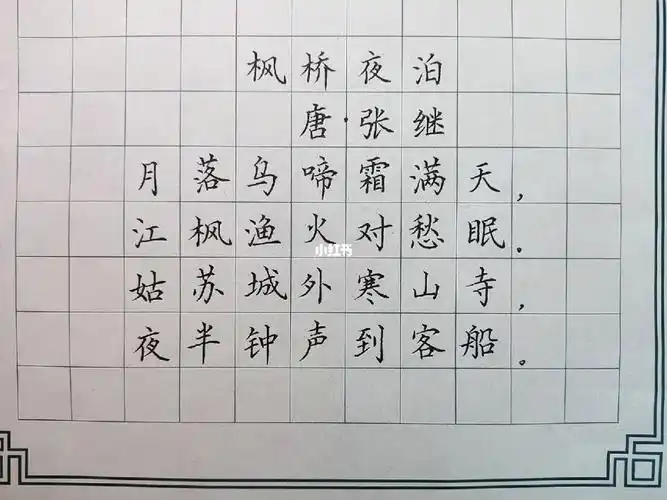 枫桥夜泊
唐·张继
月落乌啼霜满天，
江枫渔火对愁眠。
小红书
姑苏城外寒山寺，
夜半钟声到客船。